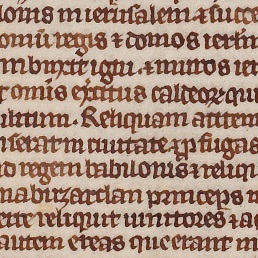 lonis in ierusalem ⁊ succe
omū regis ⁊ domos ierlm
mbuxit igni. ⁊ muros ier
t om̄is exc̄itus caldeoꝝ qui
ilitum. Reliquam autem
nserat in ciuitate ⁊ ꝑfugas
d regem babilonis ⁊ reliqu
nabuzardan princeps m
erre reliquit uinitores ⁊ a
autem ereas que erant in